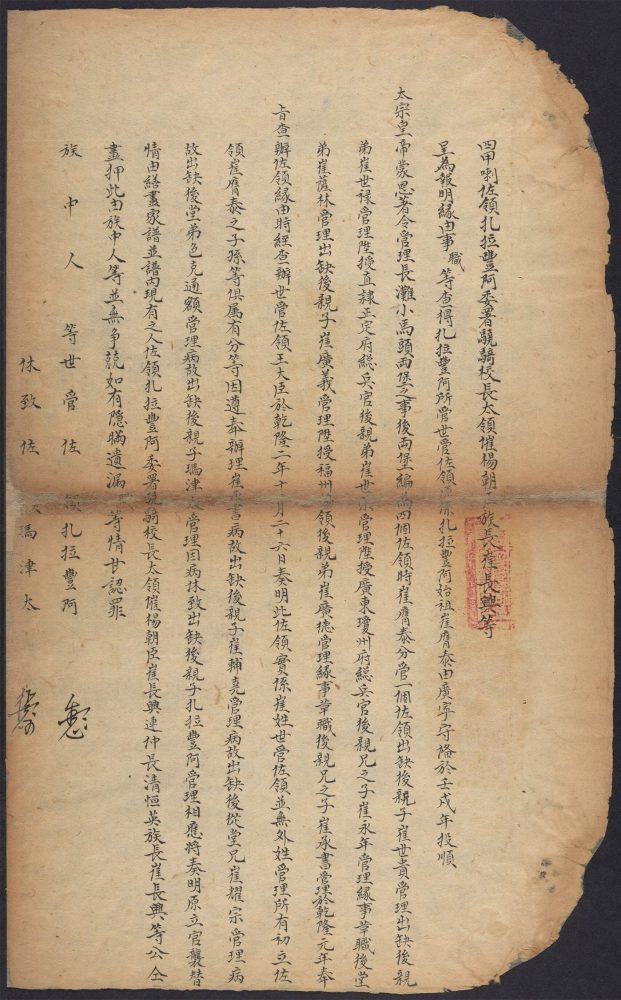 四甲喇佐領扎拉豐阿委署驍騎校長太領催楊朝 族長崔長興等
呈為報明緣由事職等查得扎拉豐阿所管世管佐領 扎拉豐阿始祖崔膺泰由廣寧守備於壬戌年投順
太宗皇帝蒙恩著令管理長灘小馬頭兩堡之事後兩堡編為四個佐領時崔膺泰分管一個佐領出缺後親子崔世貴管理出缺後親
弟崔世祿管理陞授直隸正定府總兵官後親弟崔世 管理陞授廣東瓊州府總兵官後親兄之子崔永年管理緣事革職後堂
弟崔蔭林管理出缺後親子崔廣義管理陞授福州 領後親弟崔廣德管理緣事革職後親兄之子崔承書管理於乾隆元年奉
旨查辦佐領緣由時經查辦世管佐領王大臣於乾隆二年十 月二十六日奏明此佐領實係崔姓世管佐領並無外姓管理所有初立佐
領崔膺泰之子孫等俱屬有分等因遵奉辦理崔承書病故出缺後親子崔輔堯管理病故出缺後從堂兄崔耀宗管理病
故出缺後堂弟色克通額管理病故出缺後親子瑪津 管理因病休致出缺後親子扎拉豐阿管理相應將奏明原立官襲替
情由繕畫家譜並譜內現有之人佐領扎拉豐阿委署驍騎校長太領催楊朝臣崔長興連仲長清恒英族長崔長興等公仝
畫押此由族中人等並無爭競如有隱瞞遺漏等情甘認罪
族中人等世管佐領扎拉豐阿
休致佐 瑪津太